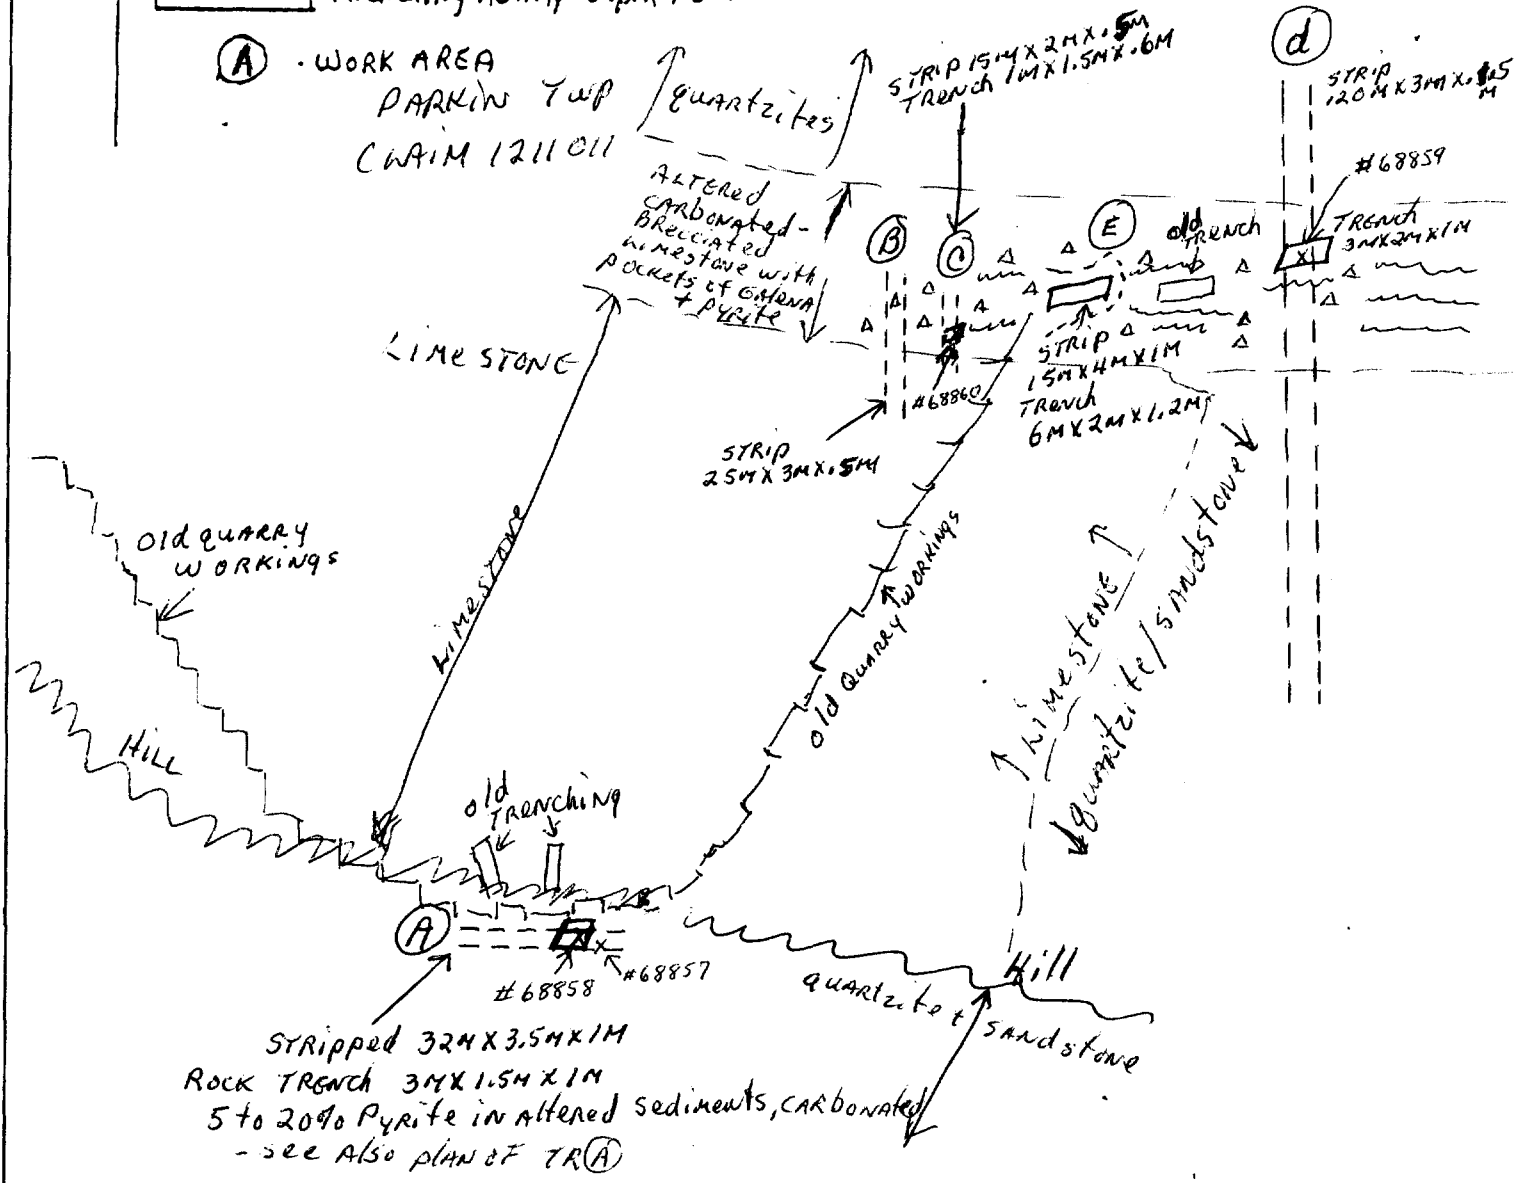 Ⓐ · WORK AREA
PARKIN TWP
CLAIM 1211011
quartzites
STRIP 15M X 2M X .5M
TRENCH 1M X 1.5M X .6M
ⓓ
STRIP
120M X 3M X
M
#68859
TRENCH
3M X 2M X 1M
ALTERED
CARBONATED-
BRECCIATED
LIMESTONE with
POCKETS of GALENA
+ PYRITE
Ⓑ
Ⓒ
Ⓔ
old
TRENCH
LIMESTONE
#68860
STRIP
15M X 4M X 1M
TRENCH
6M X 2M X 1.2M
STRIP
25M X 3M X .5M
Old QUARRY
WORKINGS
LIMESTONE
old QUARRY WORKINGS
LIMESTONE
quartzite/SANDSTONE
HILL
old
TRENCHING
Ⓐ
#68858
#68857
Hill
QUARTZITE +
SANDSTONE
STRIPPED 32M X 3.5M X 1M
ROCK TRENCH 3M X 1.5M X 1M
5 to 20% PYRITE IN Altered Sediments, CARBONATED
- see Also plan OF TR Ⓐ